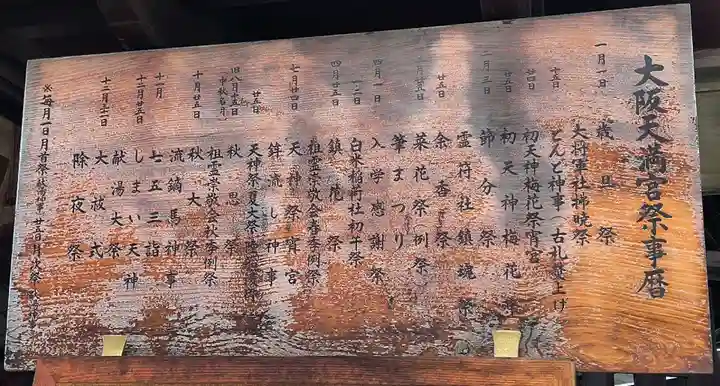 大阪天満宮祭事暦
一月一日 歳旦祭
大将軍社拂暁祭
十五日 とんど神事(古札焚上げ
廿四日 初天神梅花祭宵宮
廿五日 初天神梅花祭
二月三日 節分祭
霊符社鎮魂祭
余香祭
廿五日 菜花祭(例祭)
筆まつり
四月一日 入学感謝祭
白米稲荷社初午祭
四月廿五日 鎮花祭
祖霊崇敬会春季例祭
七月廿四日 天神祭宵宮
鉾流し神事
廿五日 天神祭夏大祭
旧八月十五日 中秋名月 秋思祭
祖霊崇敬会秋季例祭
十月廿五日 秋大祭
流鏑馬神事
十一月 七五三詣
十二月廿五日 しまい天神
献湯大祭
十二月三十一日 大祓式
除夜祭
※毎月一日月首祭 廿五日月次祭